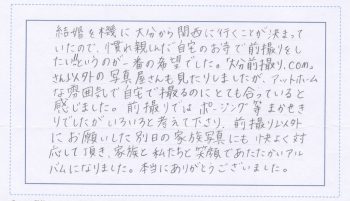 結婚を機に大分から関西に行くことが決まって
いたので、慣れ親しんだ自宅のお寺で前撮りをし
たいというのが一番の希望でした。「大分前撮り.com」
さん以外の写真屋さんも見たりしましたが、アットホーム
な雰囲気で自宅で撮るのにとても合っていると
感じました。前撮りではポージング等まかせき
りでしたがいろいろと考えて下さり、前撮り以外
にお願いした別日の家族写真にも快よく対
応して頂き、家族と私たちと笑顔であたたかいアル
バムになりました。本当にありがとうございました。